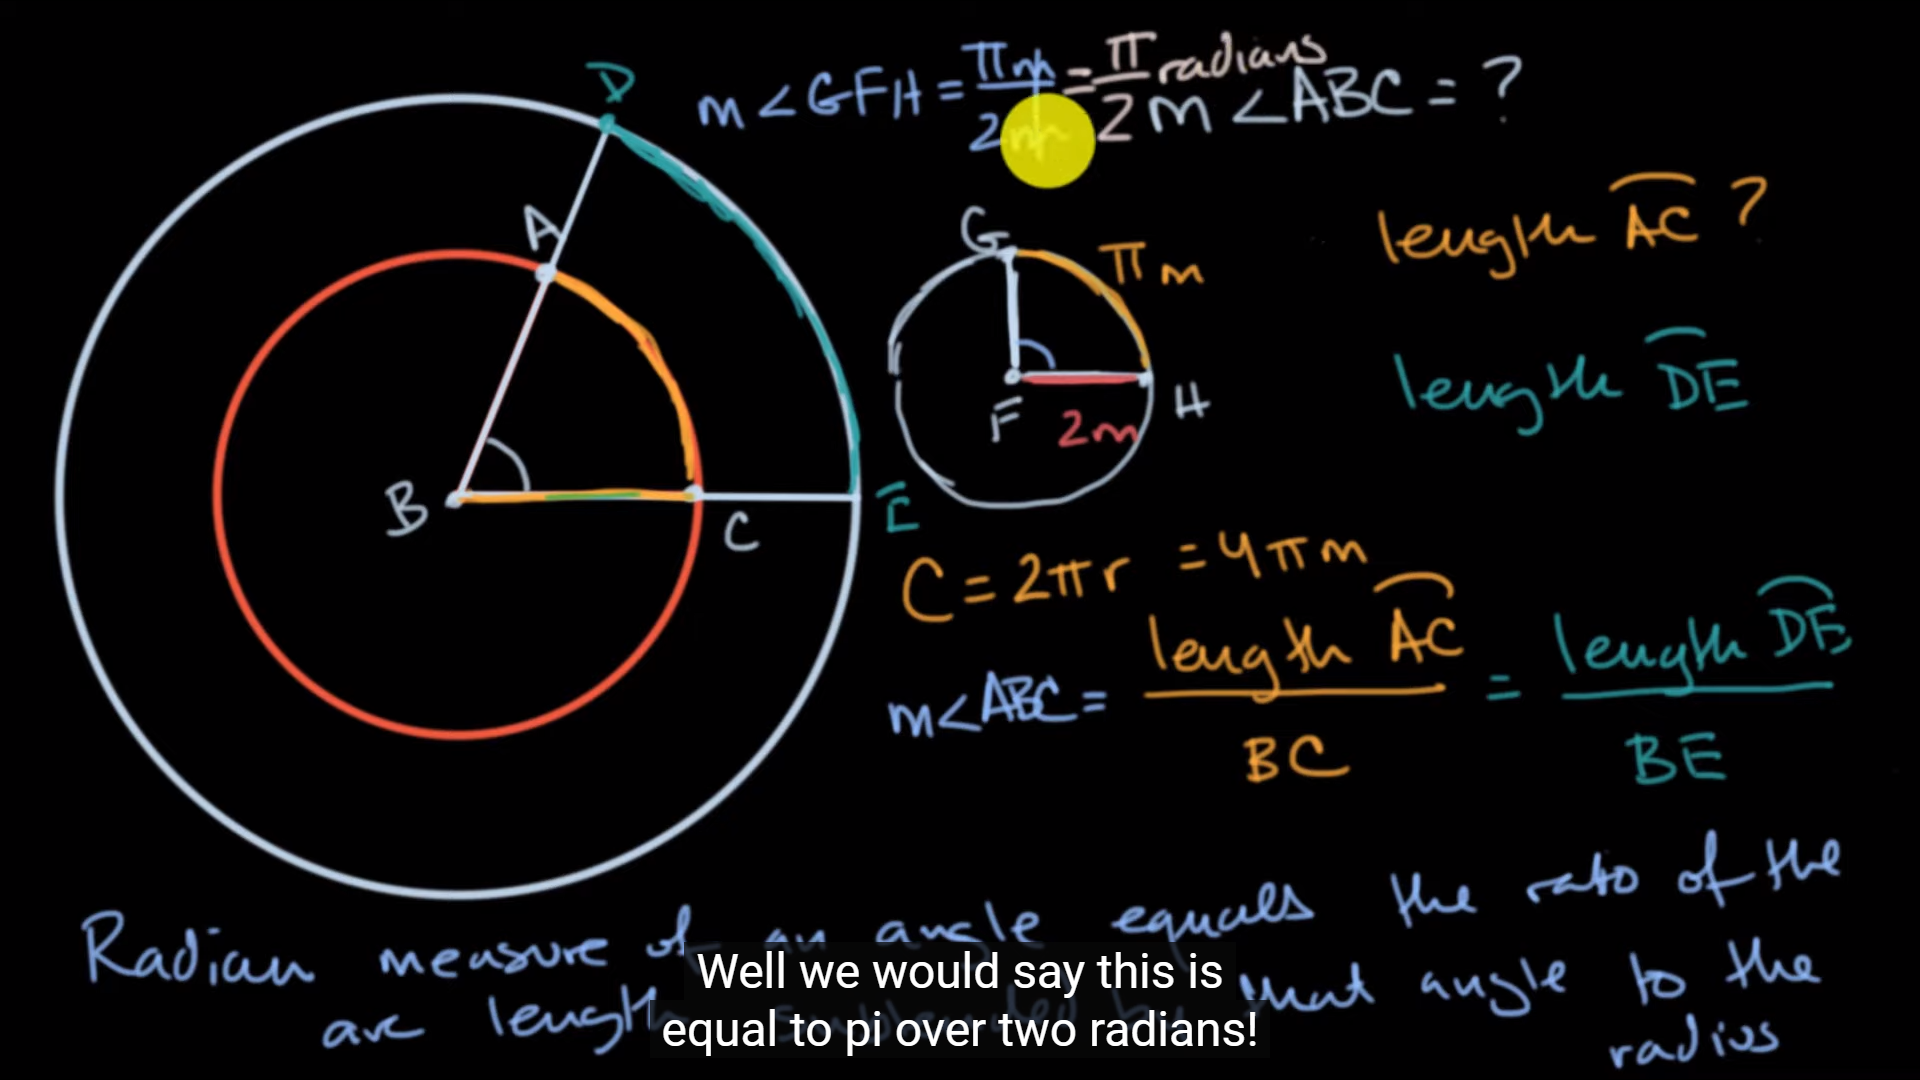 D
m∠GFH = πm/2m = π/2 radians
m∠ABC = ?
A
G
πm
length AC ?
F
2m
H
length DE
B
C
E
C = 2πr = 4πm
m∠ABC = length AC/BC = length DE/BE
Radian measure of an angle equals the ratio of the
arc length subtended by that angle to the
radius
Well we would say this is
equal to pi over two radians!